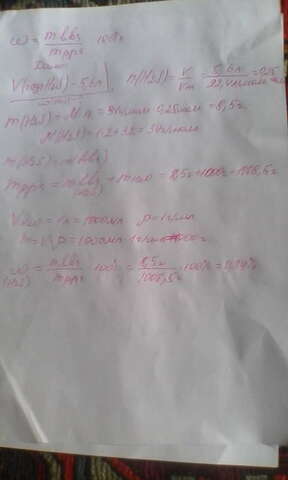 ω = m в.в. / m р-ра · 100%
Дано
V(гозы H2S) - 5,6 л n(H2S) = V / Vm = 5,6 л / 22,4 л/моль = 0,25
m(H2S) = M·n = 34 г/моль · 0,25 моль = 8,5 г
M(H2S) = 1·2 + 32 = 34 г/моль
m(H2S) = m(в.в.)
m р-ра = m в.в. (H2S) + m H2O = 8,5 г + 1000 г = 1008,5 г
V H2O = 1 л = 1000 мл ρ = 1 г/мл
m = V·ρ = 1000 мл · 1 г/мл = 1000 г
ω (H2S) = m в.в. / m р-ра · 100% = 8,5 г / 1008,5 г · 100% = 0,84%